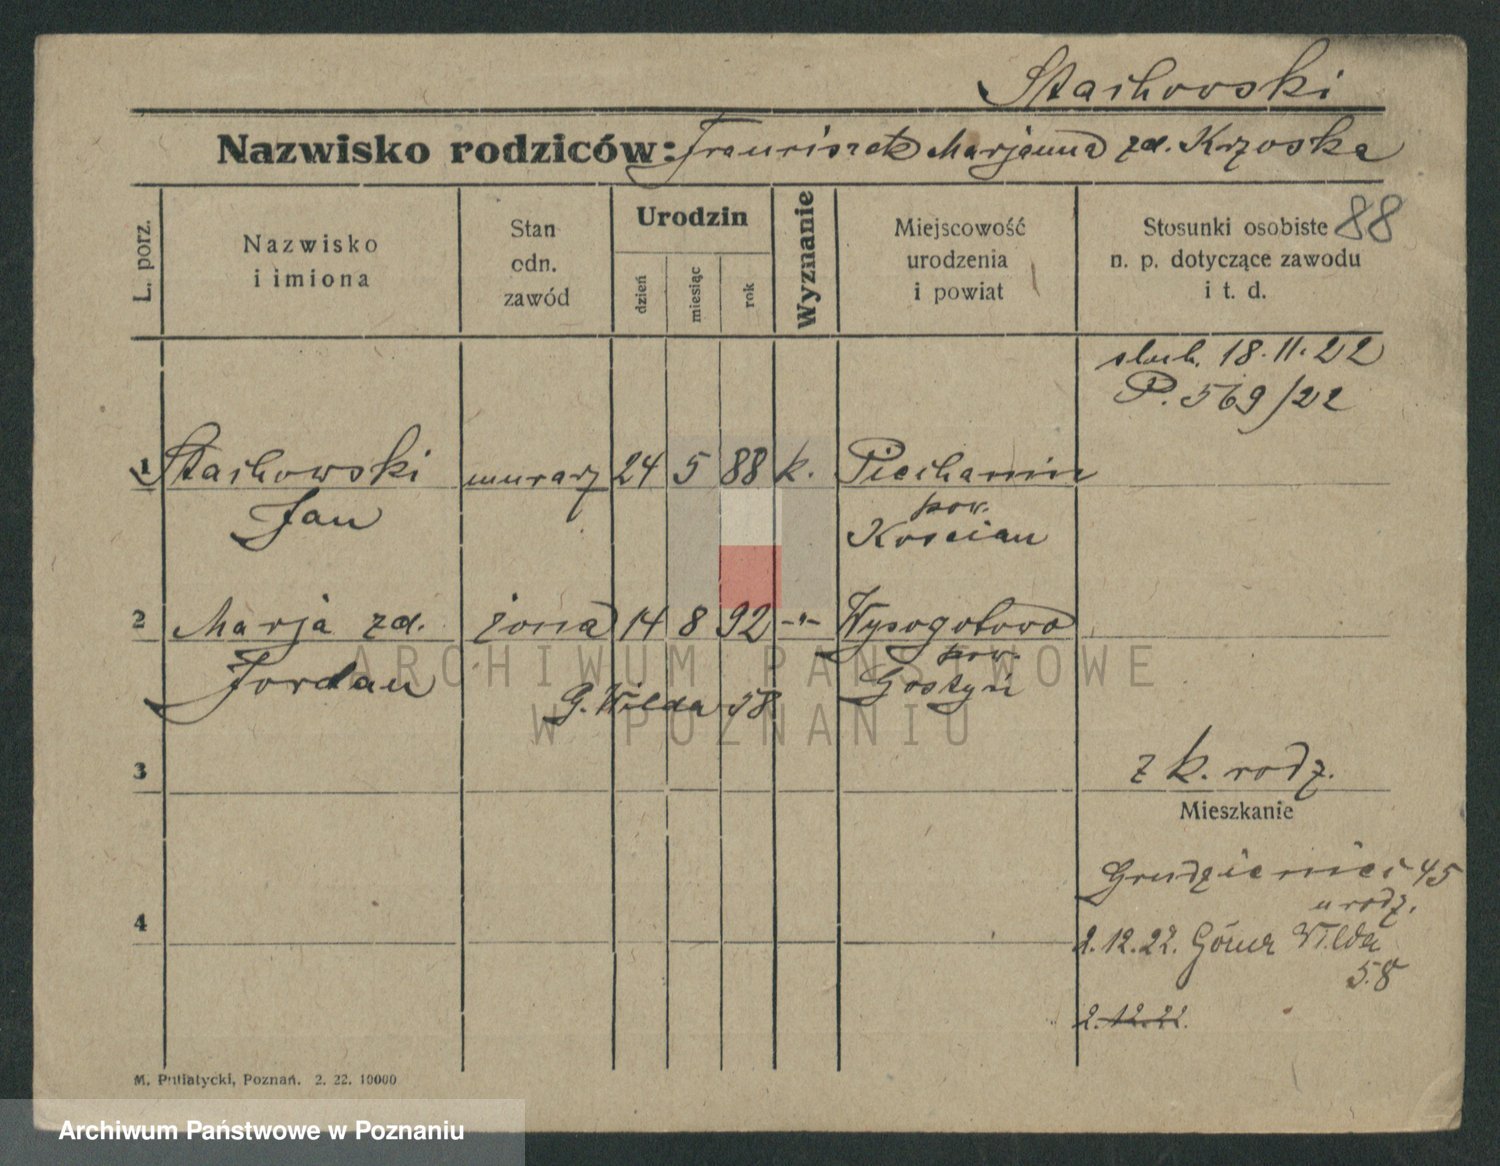 Stachowski
Nazwisko rodziców: Franciszek Marjanna zd. Krzoska
L. porz.
Nazwisko
i imiona
Stan
odn.
zawód
Urodzin
dzień
miesiąc
rok
Wyznanie
Miejscowość
urodzenia
i powiat
Stosunki osobiste 88
n. p. dotyczące zawodu
i t. d.
slub. 18.11.22
P. 569/22
1 Stachowski murarz 24 5 88 k. Piechanin
Jan
pow.
Koscian
2 Marja zd. żona 14 8 92 -"- Wysogotowo
Jordan
pow.
Gostyń
G. Wilda 58
3
z k. rodz.
Mieszkanie
Grudzieniec 45
u rodz.
4
2.12.22. Górna Wilda
58
2.12.22.
M. Putiatycki, Poznań. 2. 22. 10000
ARCHIWUM PAŃSTWOWE
W POZNANIU
Archiwum Państwowe w Poznaniu